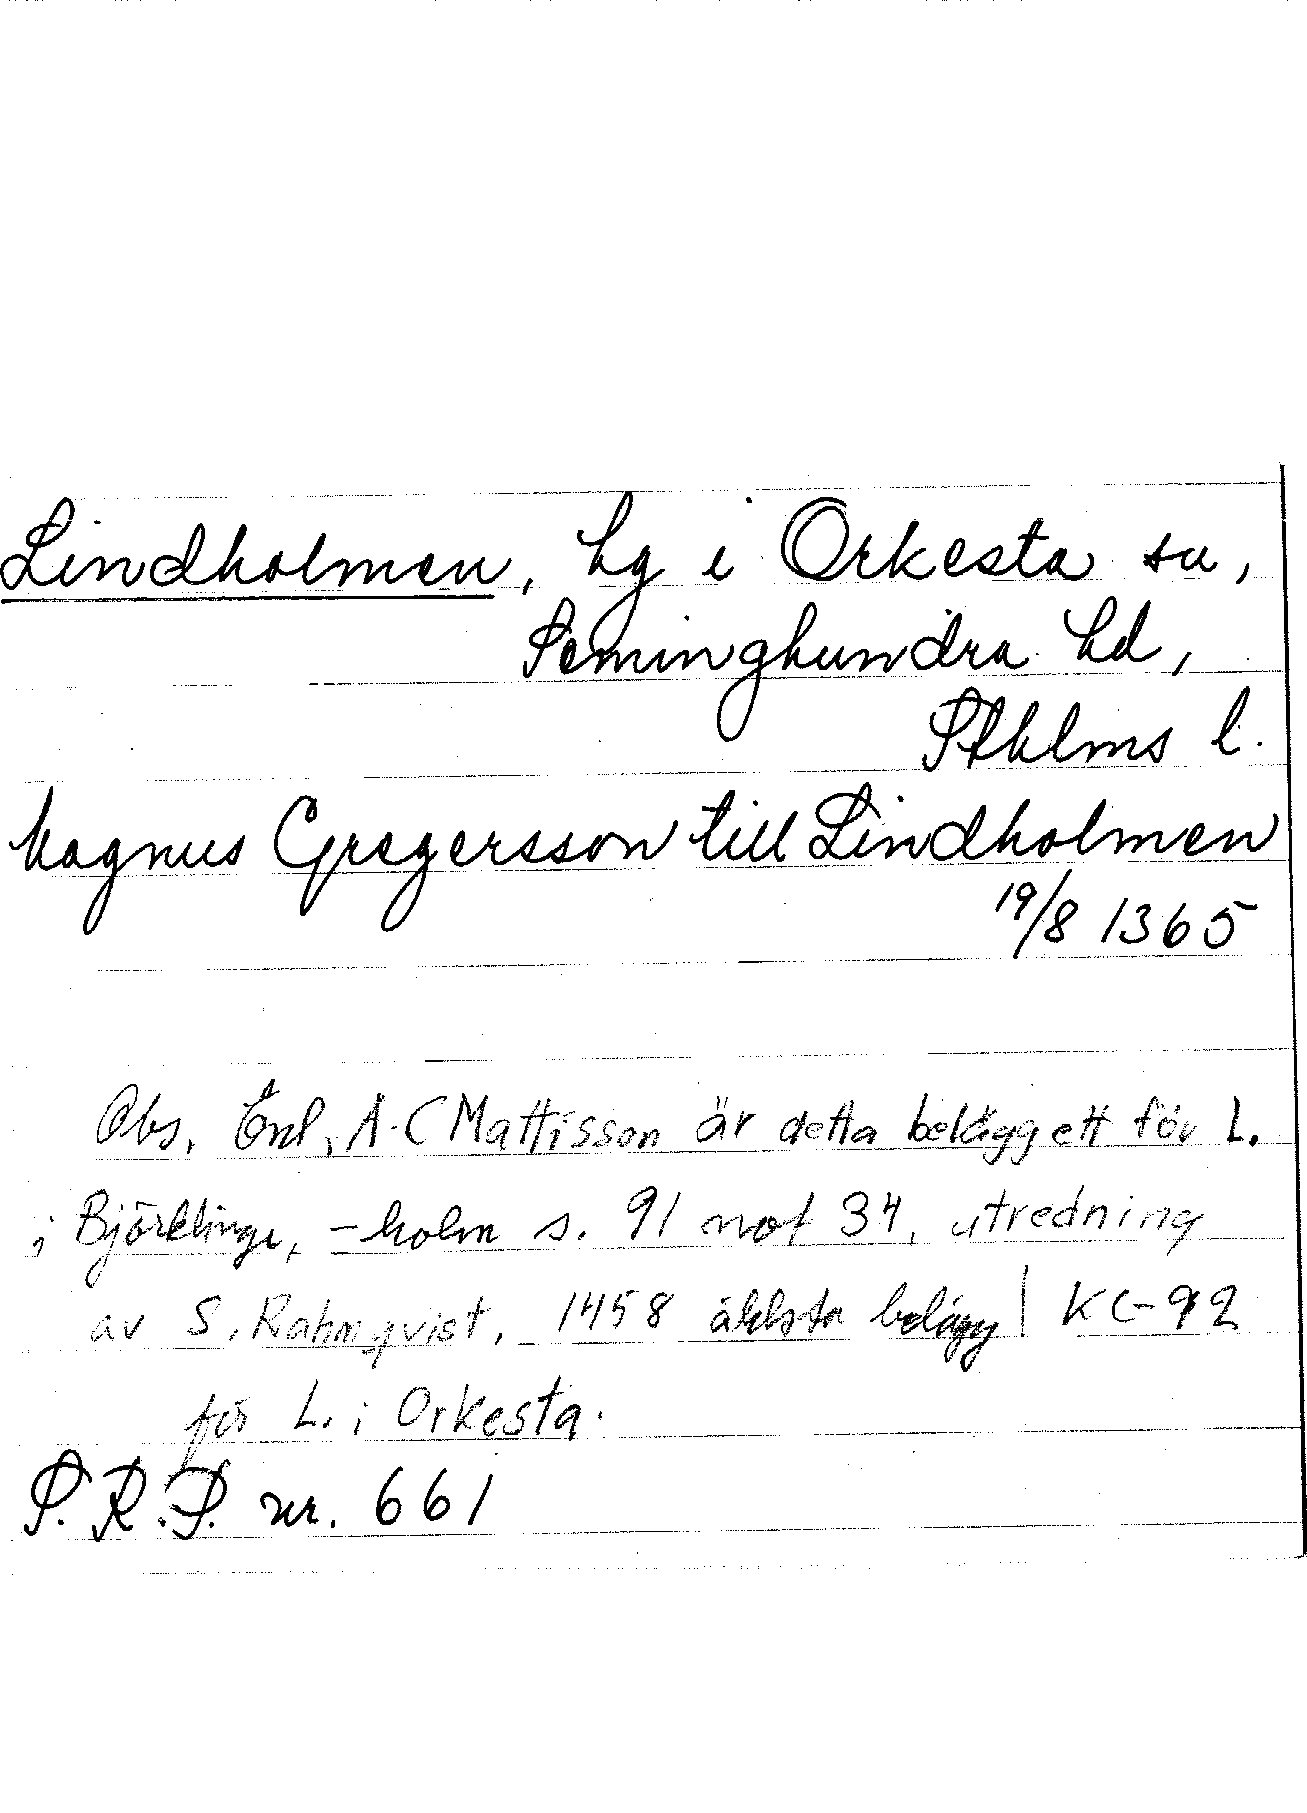 Lindholmen, hg i Orkesta sn,
Seminghundra hd,
Sthlms l.
Magnus Gregersson till Lindholmen
19/8 1365
Obs. Enl. A-C Mattisson är detta belägg ett för L.
i Björklinge, -holm s. 91 not 34, utredning
av S. Rahmqvist. 1458 äldsta belägg | KC-92
för L. i Orkesta.
S.R.P. nr. 661